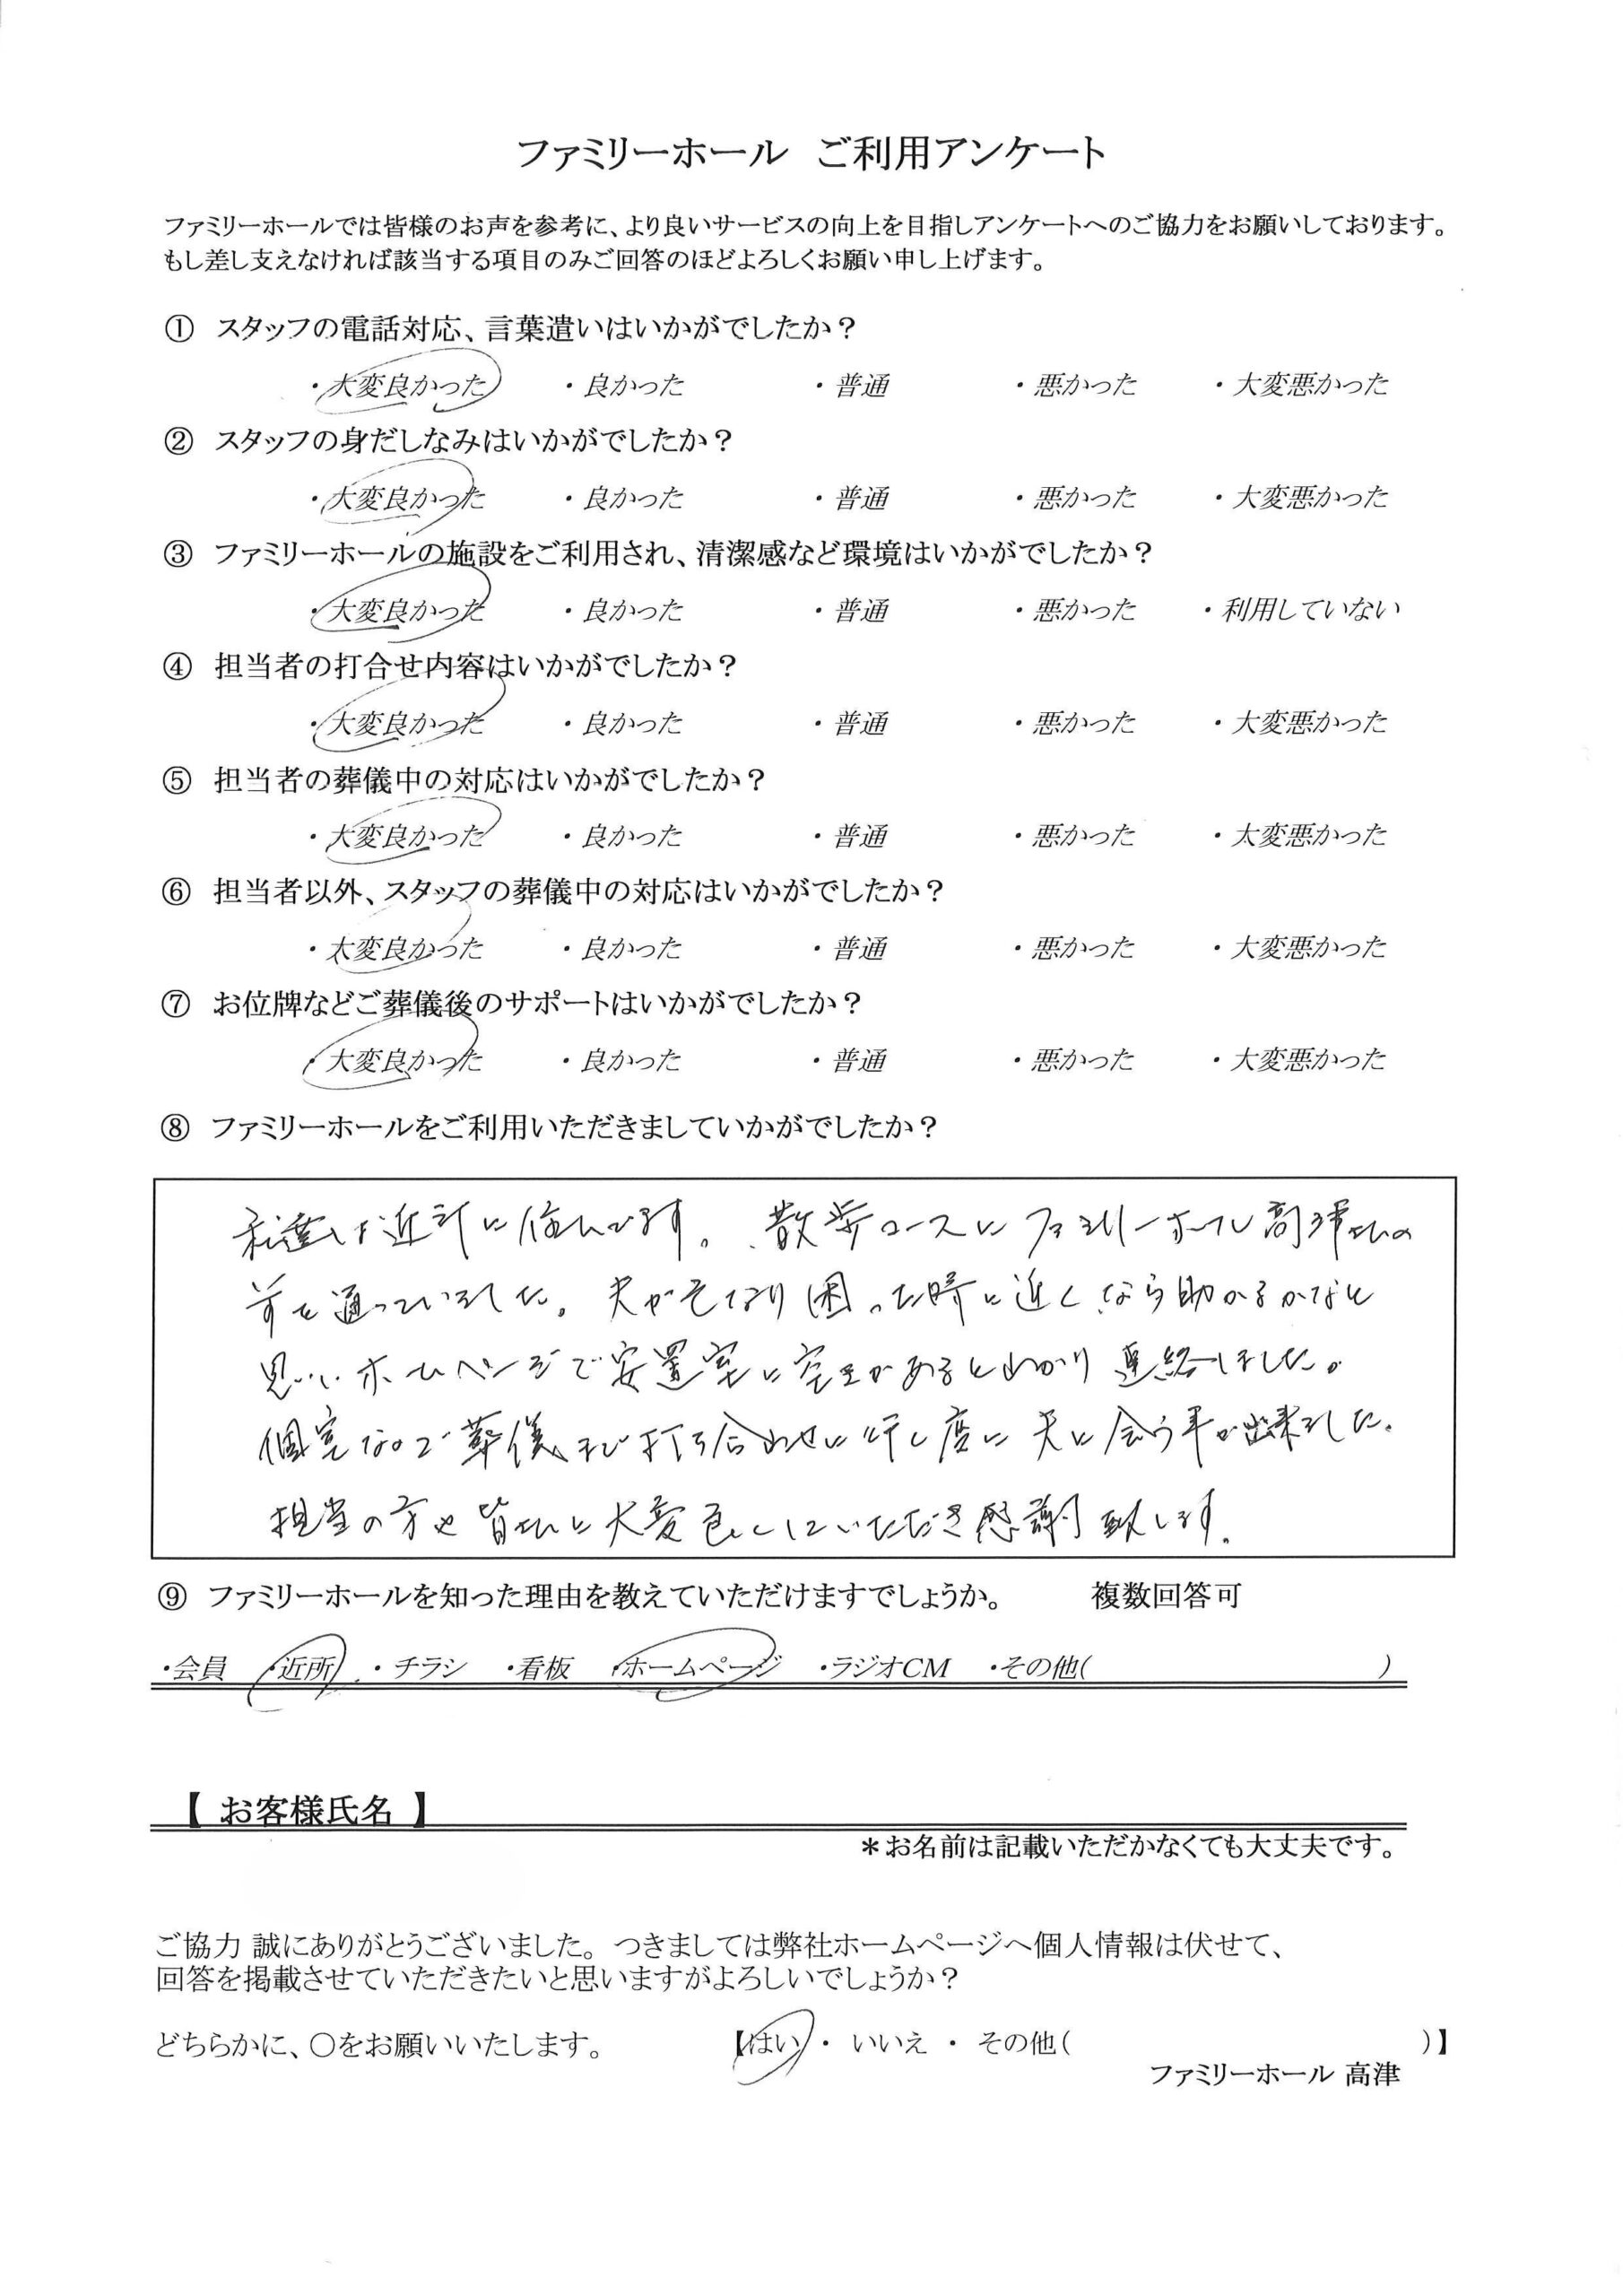 ファミリーホール ご利用アンケート
ファミリーホールでは皆様のお声を参考に、より良いサービスの向上を目指しアンケートへのご協力をお願いしております。
もし差し支えなければ該当する項目のみご回答のほどよろしくお願い申し上げます。
① スタッフの電話対応、言葉遣いはいかがでしたか？
・大変良かった ・良かった ・普通 ・悪かった ・大変悪かった
② スタッフの身だしなみはいかがでしたか？
・大変良かった ・良かった ・普通 ・悪かった ・大変悪かった
③ ファミリーホールの施設をご利用され、清潔感など環境はいかがでしたか？
・大変良かった ・良かった ・普通 ・悪かった ・利用していない
④ 担当者の打合せ内容はいかがでしたか？
・大変良かった ・良かった ・普通 ・悪かった ・大変悪かった
⑤ 担当者の葬儀中の対応はいかがでしたか？
・大変良かった ・良かった ・普通 ・悪かった ・大変悪かった
⑥ 担当者以外、スタッフの葬儀中の対応はいかがでしたか？
・大変良かった ・良かった ・普通 ・悪かった ・大変悪かった
⑦ お位牌などご葬儀後のサポートはいかがでしたか？
・大変良かった ・良かった ・普通 ・悪かった ・大変悪かった
⑧ ファミリーホールをご利用いただきましていかがでしたか？
私達は近所に住んでます。散歩コースにファミリーホール高津さんの
前を通っていました。夫が亡くなり困った時に近くなら助かるかなと
思いホームページで安置室に空きがあるとわかり連絡しました。
個室なので葬儀まで打ち合わせに行く度に夫に会う事が出来ました。
担当の方や皆さんに大変良くしていただき感謝致します。
⑨ ファミリーホールを知った理由を教えていただけますでしょうか。 複数回答可
・会員 ・近所 ・チラシ ・看板 ・ホームページ ・ラジオCM ・その他( )
【 お客様氏名 】
＊お名前は記載いただかなくても大丈夫です。
ご協力 誠にありがとうございました。つきましては弊社ホームページへ個人情報は伏せて、
回答を掲載させていただきたいと思いますがよろしいでしょうか？
どちらかに、〇をお願いいたします。 【はい ・ いいえ ・ その他( )】
ファミリーホール 高津